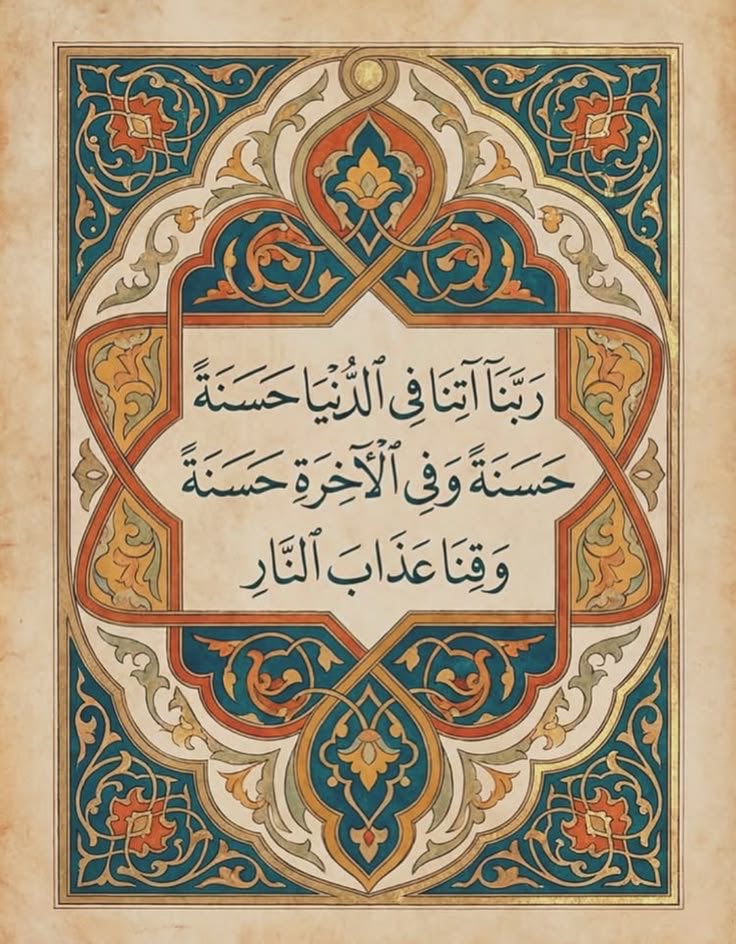 رَبَّنَآ آتِنَا فِي ٱلدُّنْيَا حَسَنَةً
حَسَنَةً وَفِي ٱلْآخِرَةِ حَسَنَةً
وَقِنَا عَذَابَ ٱلنَّارِ